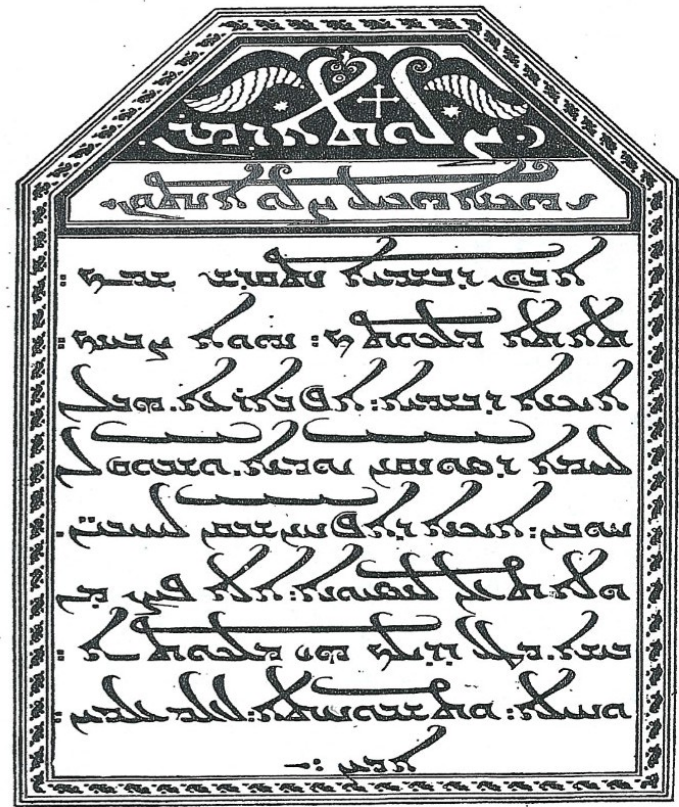 ܨܠܘܬܐ ܕܡܪܢ
ܐܒܘܢ ܕܒܫܡܝܐ ܢܬܩܕܫ ܫܡܟ :
ܬܐܬܐ ܡܠܟܘܬܟ : ܢܗܘܐ ܨܒܝܢܟ :
ܐܝܟܢܐ ܕܒܫܡܝܐ : ܐܦ ܒܐܪܥܐ. ܗܒ ܠܢ
ܠܚܡܐ ܕܣܘܢܩܢܢ ܝܘܡܢܐ. ܘܫܒܘܩ ܠܢ
ܚܘܒܝܢ : ܐܝܟܢܐ ܕܐܦ ܚܢܢ ܫܒܩܢ ܠܚܝܒܝܢ.
ܘܠܐ ܬܥܠܢ ܠܢܣܝܘܢܐ : ܐܠܐ ܦܨܢ ܡܢ
ܒܝܫܐ. ܡܛܠ ܕܕܝܠܟ ܗܝ ܡܠܟܘܬܐ :
ܘܚܝܠܐ : ܘܬܫܒܘܚܬܐ : ܠܥܠܡ ܥܠܡܝܢ :
ܐܡܝܢ :